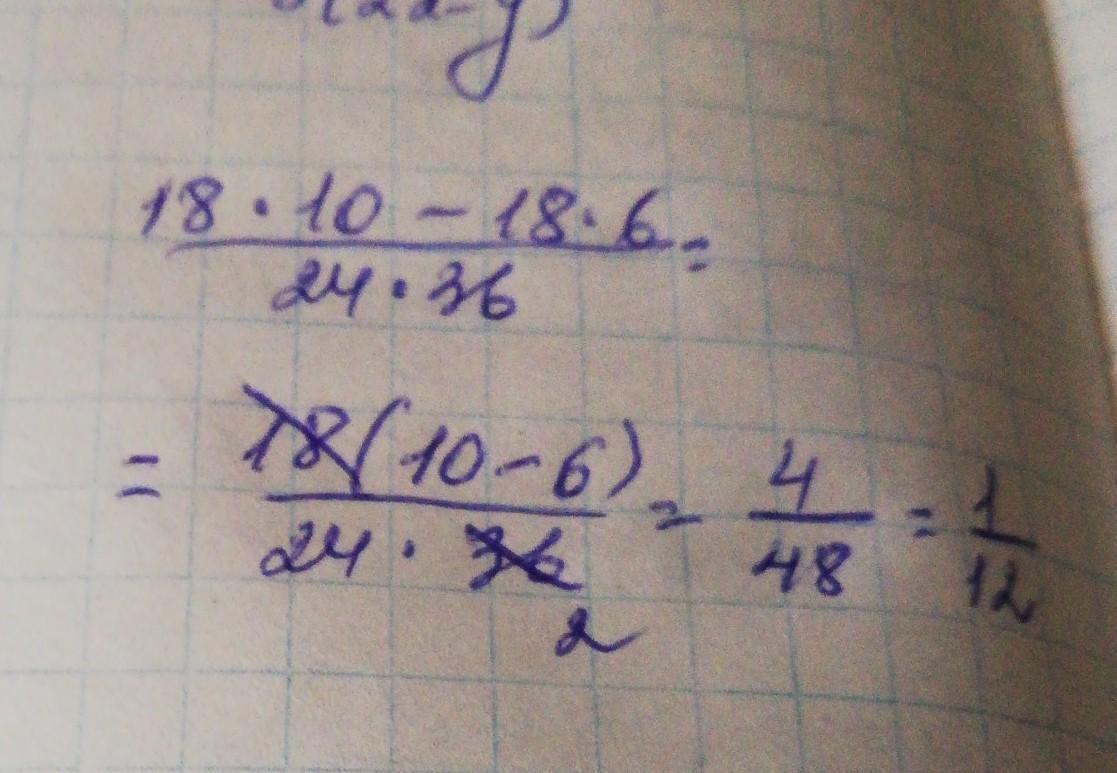 18 · 10 - 18 · 6 =
24 · 36
= 18(10-6) = 4 = 1
24 · 36 48 12
2